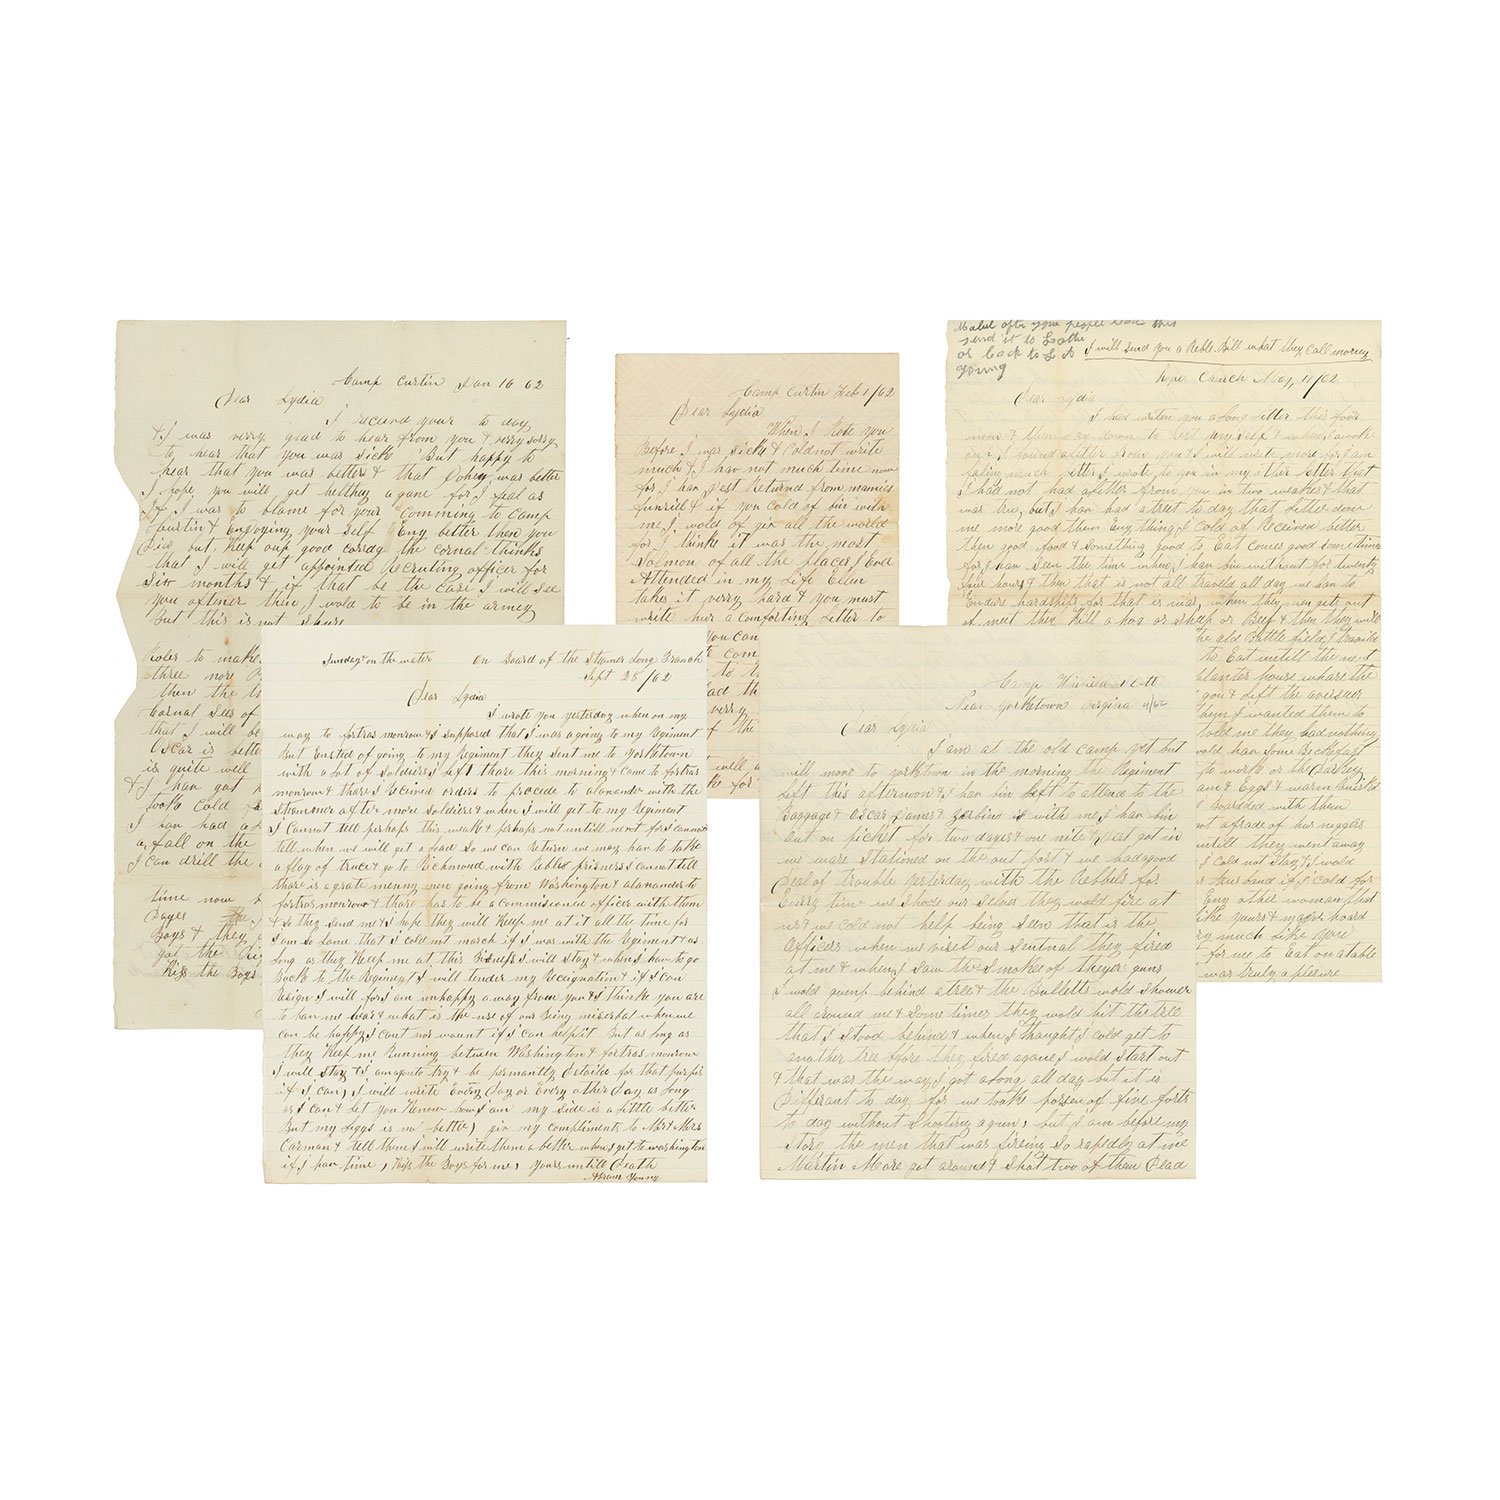 Camp Curtin Jan 16 62
Dear Lydia
I received your to day
& I was verry glad to hear from you & verry sorry
to hear that you was sick But happy to
hear that you was better & that was better
I hope you will get helthey agane for I feal as
If I was to blame for your comming to Camp
Curtin & Engoying your Self Eny better then you
Did but Keep oup good the cornal thinks
that I will get appointed Recruting officer for
Six months & if that be the Case I will See
you oftiner then I wold to be in the armey
But this is not Shure
Roles to make
three more
then the
Cornal Sees of
that I will be
Oscar is bette
is quite well
& I han got
took Cold
I han had a
a fall on the
I can drill the
time now
Dayes
Boys & they
got the
Kiss the Boys
Camp Curtin Feb 1/62
Dear Lydia
When I Rote you
Before I was Sick & Cold not write
much & I hav not much time now
for I hav Jest Returnd from
funrill & if you Cold of bin with
me I wold of giv all the world
for I thinke it was the most
Solmon of all the places I Evd
Attended in my Life Ellen
takes it verry hard & you must
write hur a Comforting Letter to
you Can
com
to
had th
verry
f the
well a
ke for
Mabel after your people read this
send it to Lottie
or back to L A
Young
I will Send you a Reble Bill what they Call money
Church May 11/62
Dear Lydia
I had writen you a Long Letter this fore
noon & then Lay down to rest my Self & when I awoke
I found a Letter from you & I will write more for I am
much Letter I wrote to you in my other Letter that
I had not had a Letter from you in two weakes & that
was true, but I hav had a treet to day that Letter don
me more good then Eny thing I Cold of Received better
then good food & Something good to Eat Comes good Sometime
for I han Seen the time when I han bin without for twenty
four hours & then that is not all travled all day we han to
Endure hardships for that is war, when they men gets out
of meet they Kill a hog or Sheep or Beef & then they will
the old Battle field &
to Eat untill the next
planter house whare the
gon & Left the overseer
I wanted them to
told me they had nothing
wold hav Some Breckfast
to work or the Darkey
am & Eggs & warm
Boardded with them
not afrade of hur niggers
untill they went away
I Cold not Stay & I wold
r Husband if I Cold for
Eny other woman that
like yours & board
ry much Like you
for me to Eat on a table
was truly a plesure
Sunday & on the water On Board of the Steamer Long Branch
Sept 28/62
Dear Lydia
I wrote you yesterday when on my
way to fortras monrow & I supposed that I was a going to my Regiment
But Ensted of going to my Regiment they Sent me to Yorktown
with a Lot of Soldiers Left thare this morning & Came to fortras
monrow & thare I Recived orders to procede to alaxander with the
Steamer after more Soldiers & when I will get to my Regiment
I Cannot tell perhaps this weak & perhaps not untill next for I cannot
tell when we will get a load So we can Return we may hav to take
a flag of truce & go to Richmond with Rebles prisners I cannot tell
thare is a grate menny men going from Washington & alaxander to
fortras monrow & thare has to be a Commiscioned officer with them
& So they Send me & I hope they will Keep me at it all the time for
I am So Lame that I Cold not march if I was with the Regiment & as
Long as they Keep me at this Bisness I will Stay & when I hav to go
Back to the Regiment I will tender my Resignation & if I Can
Resign I will for I am unhappy a way from you & I thinke you are
to & what is the use of our Being miserbal when we
can be happy I Cant nor waunt if I can help it But as Long as
they Keep me Running between Washington & fortras monrow
I will Stay & I am to try & be permantly Detailed for that purpis
if I can, I will write Every Day or Every other Day as Long
as I can & Let you Know how I am my Side is a Little better
But my Leggs is no better, giv my Compliments to Mr & Mrs
Carman & tell them I will write them a Letter when I get to washington
if I hav time, Kiss the Boys for me, yours untill Death
Abram Young
Camp
Near Yorktown virginia 4/62
Dear Lydia
I am at the old Camp yet but
will move to yorktown in the morning the Regiment
Left this afternoon & I hav bin Left to attend to the
Baggage & Oscar James & is with me I hav bin
Out on picket for two dayes & one nite & Jest got in
we ware Stationed on the out post & we had a good
Deal of trouble yesterday with the Rebbels for
Every time we Shoed our Selvs they wold fire at
us & we Cold not help being Seen that is the
Officers when we viset our Sentnal they fired
at me & when I Saw the Smoke of theyer guns
I wold gump behind a tree & the Bulletts wold Shower
all around me & Some times they wold hit the tree
that I Stood behind & when I thought I Cold get to
another tree before they fired agane I wold Start out
& that was the way I got a long all day but it is
Differant to day for we took of fine forts
to day without Shooting a gun, but I am before my
Story the men that was fireing So rapedly at me
Martin More got around & Shot two of them Dead